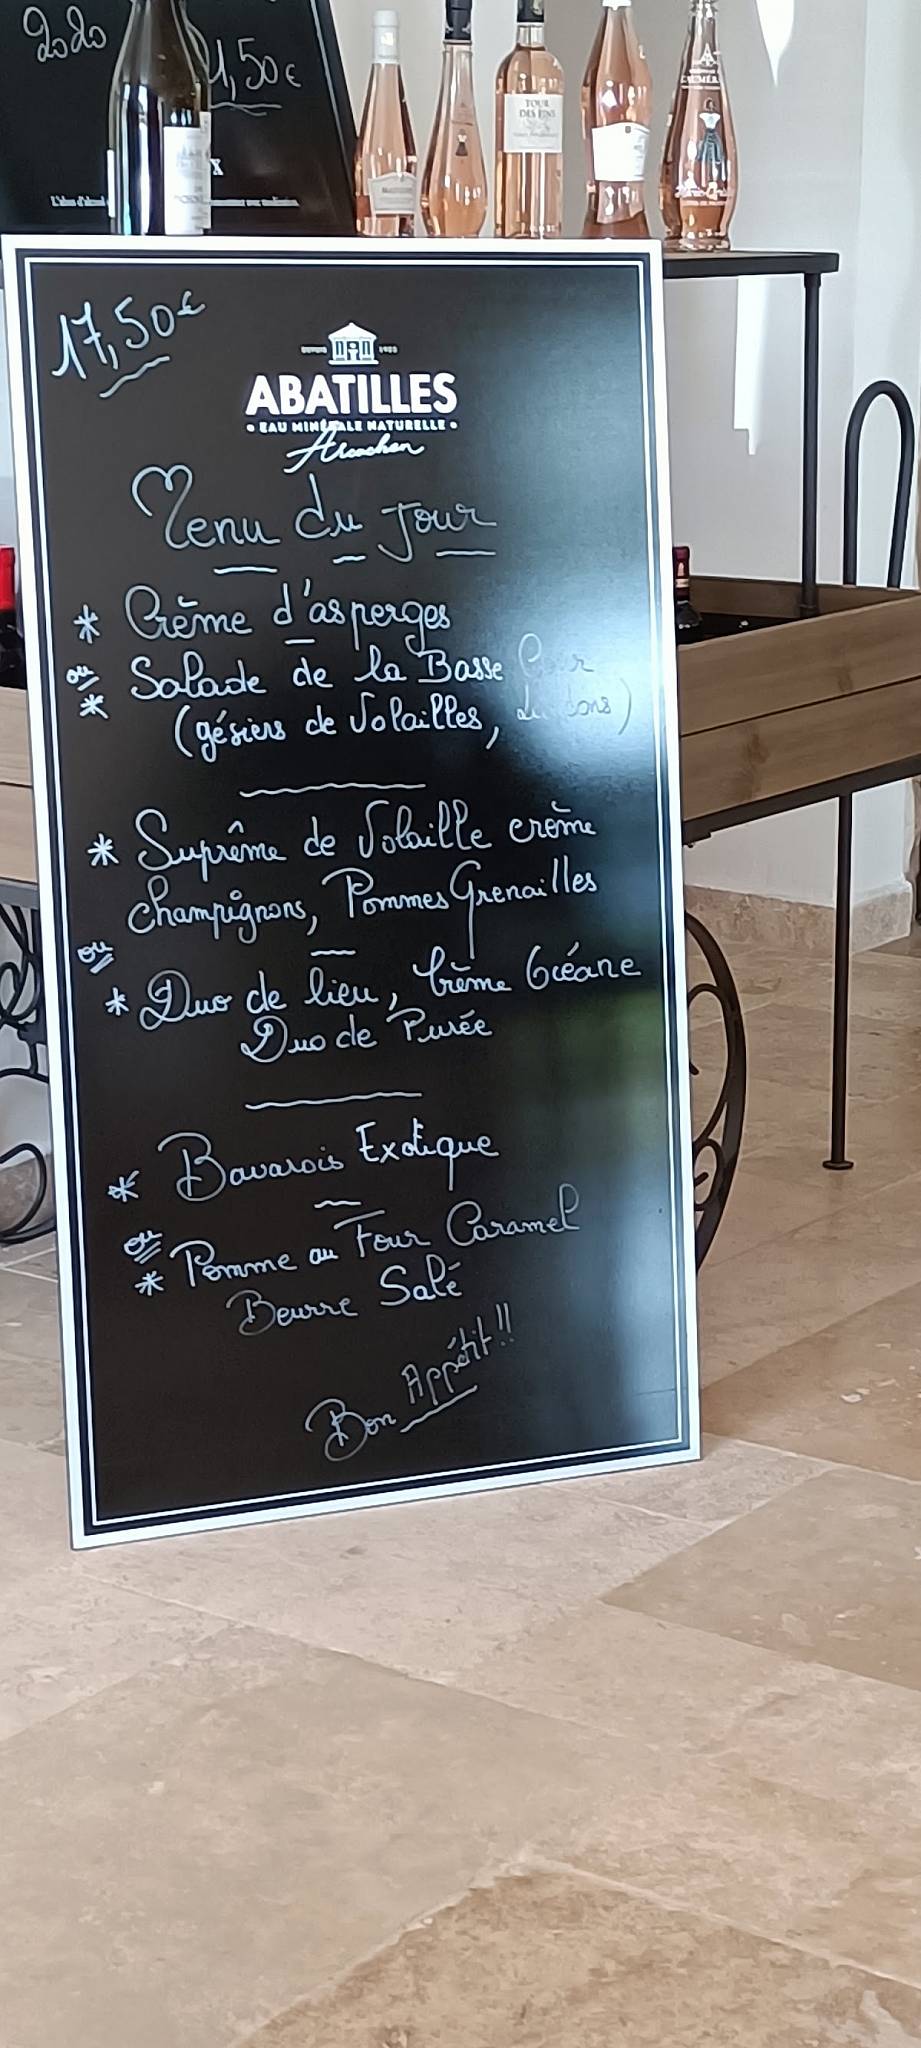 dodo
1,50€
TOUR
DES PINS
17,50€
DEPUIS 1925
ABATILLES
• EAU MINÉRALE NATURELLE •
Arcachon
Menu du jour
* Crème d'asperges
ou
* Salade de la Basse Cour
(gésiers de Volailles, Lardons)
* Suprême de Volaille crème
Champignons, Pommes Grenailles
ou
* Duo de lieu, Crème Océane
Duo de Purée
* Bavarois Exotique
ou
* Pomme au Four Caramel
Beurre Salé
Bon Appétit!!